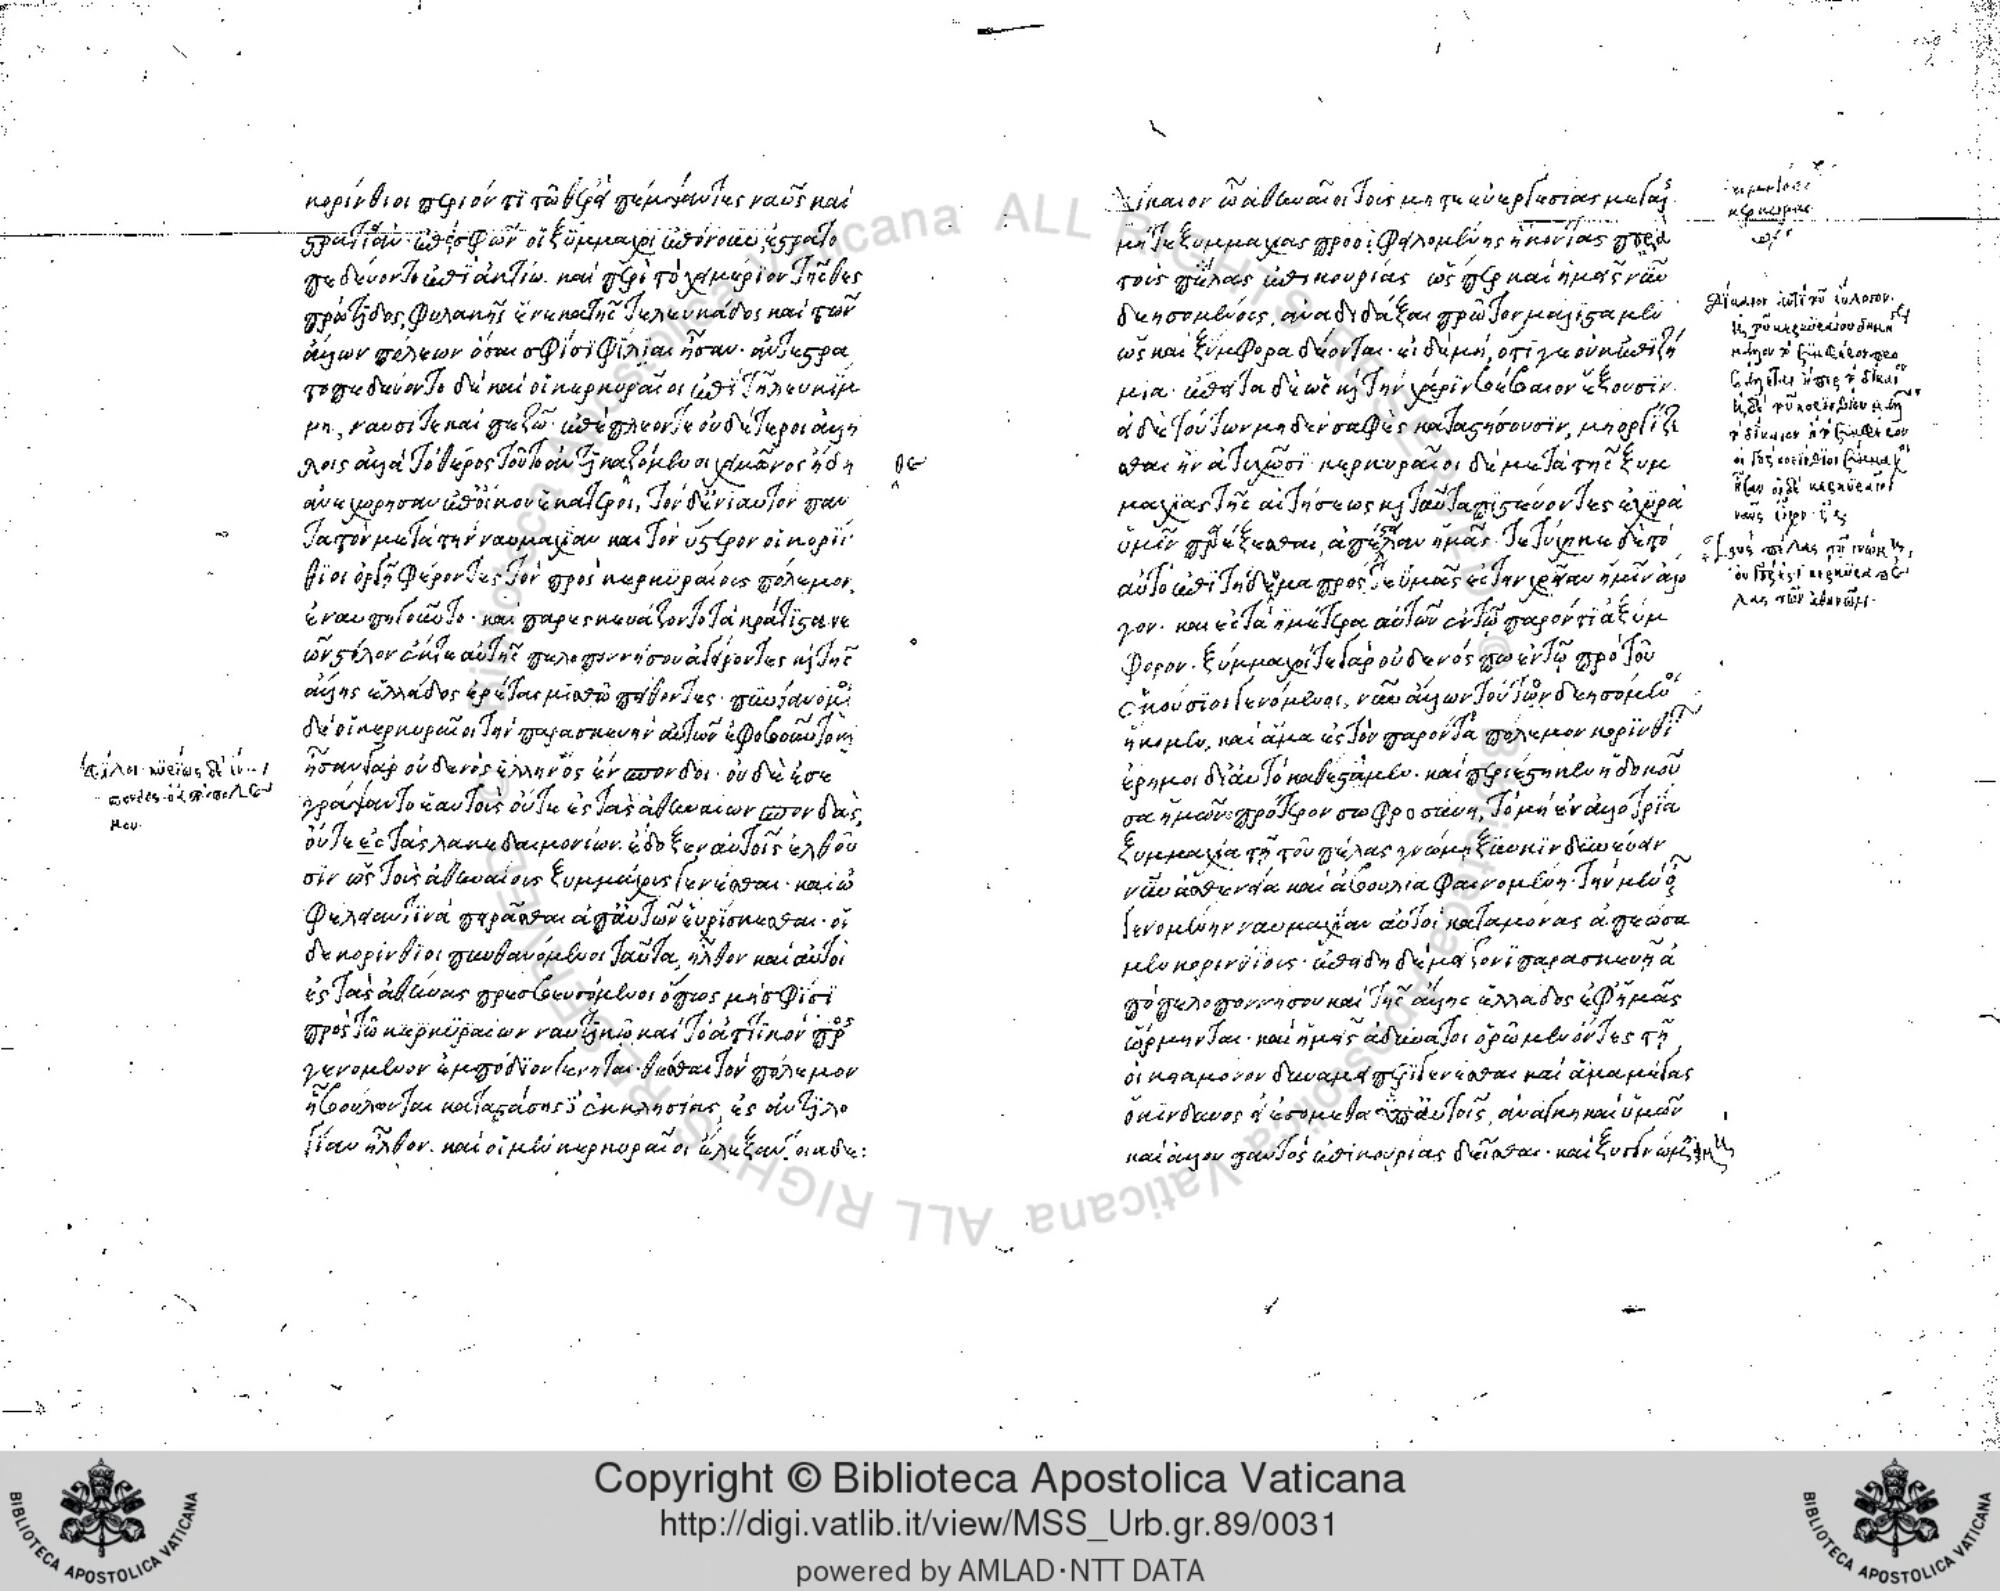 κορίνθιοι περιόντι τῶ θέρει πέμψαντες ναῦς καὶ
στρατιὰν ἐπεὶ σφῶν οἱ ξύμμαχοι ἐπόνουν, ἐστρατο
πεδεύοντο ἐπὶ ἀκτίω. καὶ περὶ τὸ χειμέριον τῆς θεσ
πρωτίδος, φυλακῆς ἕνεκα τῆς τε λευκάδος καὶ τῶν
ἄλλων πόλεων ὅσαι σφίσι φίλιαι ἦσαν. ἀντεστρα
τοπεδεύοντο δὲ καὶ οἱ κερκυραῖοι ἐπὶ τῇ λευκίμ
μη, ναυσί τε καὶ πεζῶ. ἐπέπλεόν τε οὐδέτεροι ἀλλή
λοις ἀλλὰ τὸ θέρος τοῦτο ἀντικαθεζόμενοι χειμῶνος ἤδη
ἀνεχώρησαν ἐπ' οἴκου ἑκάτεροι, τὸν δ' ἐνιαυτὸν πάν
τα τὸν μετὰ τὴν ναυμαχίαν καὶ τὸν ὕστερον οἱ κορίν
θιοι ὀργῇ φέροντες τὸν πρὸς κερκυραίους πόλεμον,
ἐναυπηγοῦντο. καὶ παρεσκευάζοντο τὰ κράτιστα νε
ῶν στόλον ἔκ τε αὐτῆς πελοποννήσου ἀγείροντες καὶ τῆς
ἄλλης ἑλλάδος ἐρέτας μισθῶ πείθοντες. πυνθανόμενοι
δὲ οἱ κερκυραῖοι τὴν παρασκευὴν αὐτῶν ἐφοβοῦντο καὶ
ἦσαν γὰρ οὐδενὸς ἑλλήνων ἔνσπονδοι. οὐδὲ ἐσε
γράψαντο ἑαυτοὺς οὔτε ἐς τὰς ἀθηναίων σπονδὰς,
οὔτε ἐς τὰς λακεδαιμονίων. ἔδοξεν αὐτοῖς ἐλθοῦ
σιν ὡς τοὺς ἀθηναίους ξυμμάχους γενέσθαι. καὶ ὠ
φέλειάν τινα πειρᾶσθαι ἀπ' αὐτῶν εὑρίσκεσθαι. οἱ
δὲ κορίνθιοι πυνθανόμενοι ταῦτα, ἦλθον καὶ αὐτοὶ
ἐς τὰς ἀθήνας πρεσβευσόμενοι ὅπως μὴ σφίσι
πρὸς τῶ κερκυραίων ναυτικῶ καὶ τὸ ἀττικὸν προσ
γενόμενον ἐμπόδιον γένηται. θέσθαι τὸν πόλεμον
ἧ βούλονται. καταστάσης δὲ ἐκκλησίας, ἐς ἀντιλο
γίαν ἦλθον. καὶ οἱ μὲν κερκυραῖοι ἔλεξαν τοιάδε:
Δίκαιον ὦ ἀθηναῖοι τοὺς μήτε εὐεργεσίας μεγάλης
μήτε ξυμμαχίας προοφειλομένης ἥκοντας παρὰ
τοὺς πέλας ἐπικουρίας ὥσπερ καὶ ἡμεῖς νῦν
δεησομένους, ἀναδιδάξαι πρῶτον μάλιστα μὲν
ὡς καὶ ξύμφορα δέονται. εἰ δὲ μὴ, ὅτι γε οὐκ ἐπιζή
μια. ἔπειτα δὲ ὡς καὶ τὴν χάριν βέβαιον ἕξουσιν.
εἰ δὲ τούτων μηδὲν σαφὲς καταστήσουσιν, μὴ ὀργίζε
σθαι ἢν ἀτυχῶσι. κερκυραῖοι δὲ μετὰ τῆς ξυμ
μαχίας τῆς αἰτήσεως καὶ ταῦτα πιστεύοντες ἐχυρὰ
ὑμῖν παρέξεσθαι, ἀπέστειλαν ἡμᾶς. τετύχηκε δὲ τὸ
αὐτὸ ἐπιτήδευμα πρός τε ὑμᾶς ἐς τὴν χρείαν ἡμῖν ἄλο
γον. καὶ ἐς τὰ ἡμέτερα αὐτῶν ἐν τῶ παρόντι ἀξύμ
φορον. ξύμμαχοί τε γὰρ οὐδενός πω ἐν τῶ πρὸ τοῦ
ἑκούσιοι γενόμενοι, νῦν ἄλλων τοῦτο δεησόμενοι
ἥκομεν, καὶ ἅμα ἐς τὸν παρόντα πόλεμον κορινθίων
ἔρημοι δι' αὐτὸ καθέσταμεν. καὶ περιέστηκεν ἡ δοκοῦ
σα ἡμῶν πρότερον σωφροσύνη, τὸ μὴ ἐν ἀλλοτρία
ξυμμαχία τῇ τοῦ πέλας γνώμῃ ξυγκινδυνεύειν
νῦν ἀσθένεια καὶ ἀβουλία φαινομένη. τὴν μὲν οὖν
γενομένην ναυμαχίαν αὐτοὶ κατὰ μόνας ἀπεωσά
μεθα κορινθίους. ἐπειδὴ δὲ μείζονι παρασκευῇ ἀ
πὸ πελοποννήσου καὶ τῆς ἄλλης ἑλλάδος ἐφ' ἡμᾶς
ὥρμηνται. καὶ ἡμεῖς ἀδύνατοι ὁρῶμεν ὄντες τῇ
οἰκεία μόνον δυνάμει περιγενέσθαι καὶ ἅμα μέγας
ὁ κίνδυνος εἰ ἐσόμεθα ὑπ' αὐτοῖς, ἀνάγκη καὶ ὑμῶν
καὶ ἄλλου παντὸς ἐπικουρίας δεῖσθαι. καὶ ξυγγνώμη εἰ μὴ
Copyright © Biblioteca Apostolica Vaticana
http://digi.vatlib.it/view/MSS_Urb.gr.89/0031
powered by AMLAD·NTT DATA
BIBLIOTECA APOSTOLICA VATICANA
BIBLIOTECA APOSTOLICA VATICANA